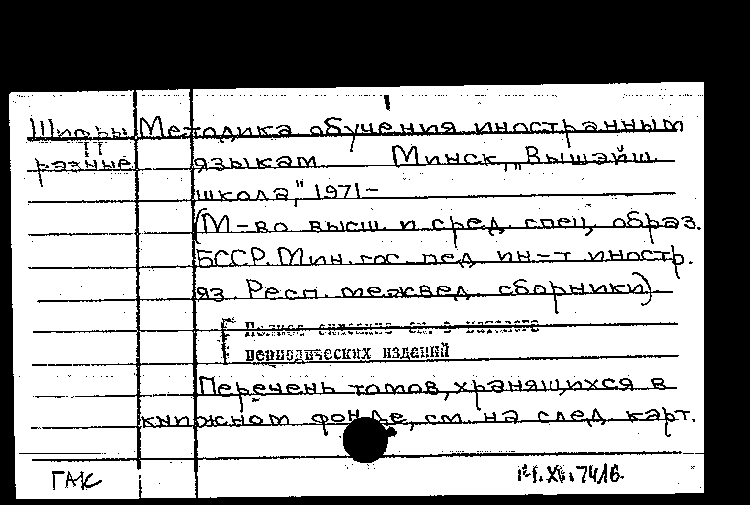 Шифры Методика обучения иностранным
разные языкам Минск, „Вышэйш.
школа," 1971-
(М-во высш. и сред. спец. образ.
БССР. Мин. гос. пед. ин-т иностр.
яз. Респ. межвед. сборники).
Полное описание см. в каталоге
периодических изданий
Перечень томов, хранящихся в
книжном фонде, см. на след. карт.
ГАК